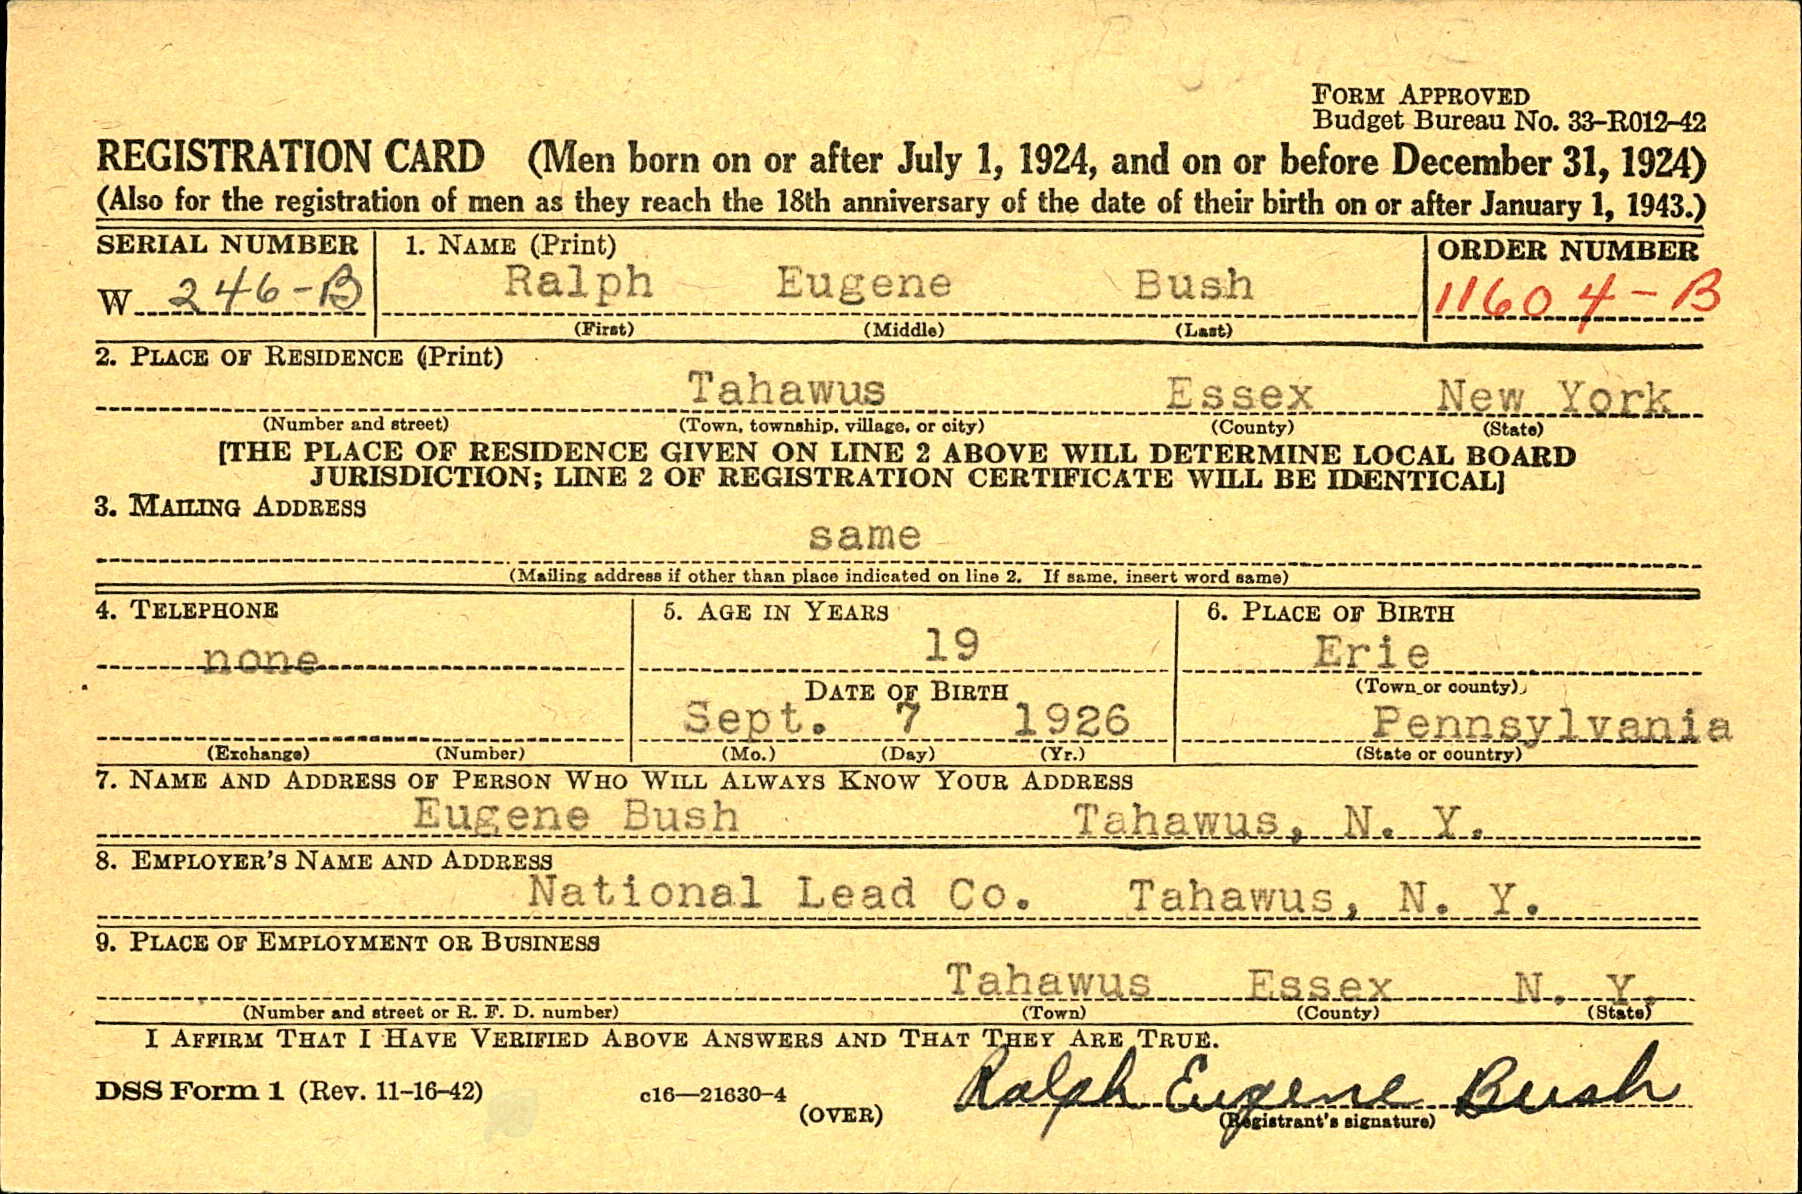 FORM APPROVED
Budget Bureau No. 33-R012-42
REGISTRATION CARD (Men born on or after July 1, 1924, and on or before December 31, 1924)
(Also for the registration of men as they reach the 18th anniversary of the date of their birth on or after January 1, 1943.)
SERIAL NUMBER 1. NAME (Print) ORDER NUMBER
W 246-B Ralph Eugene Bush 11604-B
(First) (Middle) (Last)
2. PLACE OF RESIDENCE (Print)
Tahawus Essex New York
(Number and street) (Town, township, village, or city) (County) (State)
[THE PLACE OF RESIDENCE GIVEN ON LINE 2 ABOVE WILL DETERMINE LOCAL BOARD
JURISDICTION; LINE 2 OF REGISTRATION CERTIFICATE WILL BE IDENTICAL]
3. MAILING ADDRESS
same
(Mailing address if other than place indicated on line 2. If same, insert word same)
4. TELEPHONE 5. AGE IN YEARS 6. PLACE OF BIRTH
none 19 Erie
DATE OF BIRTH (Town or county)
Sept. 7 1926 Pennsylvania
(Exchange) (Number) (Mo.) (Day) (Yr.) (State or country)
7. NAME AND ADDRESS OF PERSON WHO WILL ALWAYS KNOW YOUR ADDRESS
Eugene Bush Tahawus, N. Y.
8. EMPLOYER'S NAME AND ADDRESS
National Lead Co. Tahawus, N. Y.
9. PLACE OF EMPLOYMENT OR BUSINESS
Tahawus Essex N. Y.
(Number and street or R. F. D. number) (Town) (County) (State)
I AFFIRM THAT I HAVE VERIFIED ABOVE ANSWERS AND THAT THEY ARE TRUE.
DSS Form 1 (Rev. 11-16-42) c16—21630-4 (OVER) Ralph Eugene Bush
(Registrant's signature)